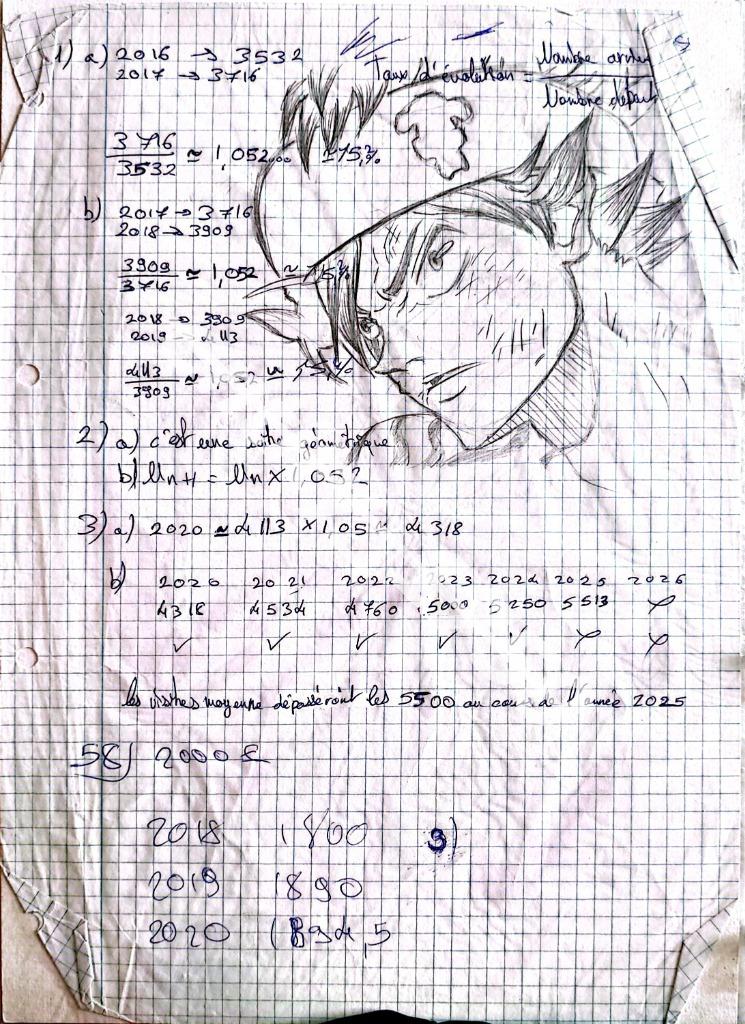 1) a) 2016 → 3532
2017 → 3716
Taux d'évolution = Nombre
Nombre départ
3716/3532 ≃ 1,052... ≃ 5,2%
b) 2017 → 3716
2018 → 3909
3909/3716 ≃ 1,052 ≃
2018 → 3909
2019 → 4113
4113/3909 ≃ 1,052 ≃
2) a) c'est une suite géométrique
b) Un+1 = Un × 1,052
3) a) 2020 ≃ 4113 × 1,05 ≃ 4318
b) 2020 2021 2022 2023 2024 2025 2026
4318 4534 4760 5000 5250 5513 ×
✓ ✓ ✓ ✓ ✓ × ×
les visites moyenne dépasseront les 5500 au cours de l'année 2025
58) 2000 €
2018 1800 3)
2019 1890
2020 1894,5